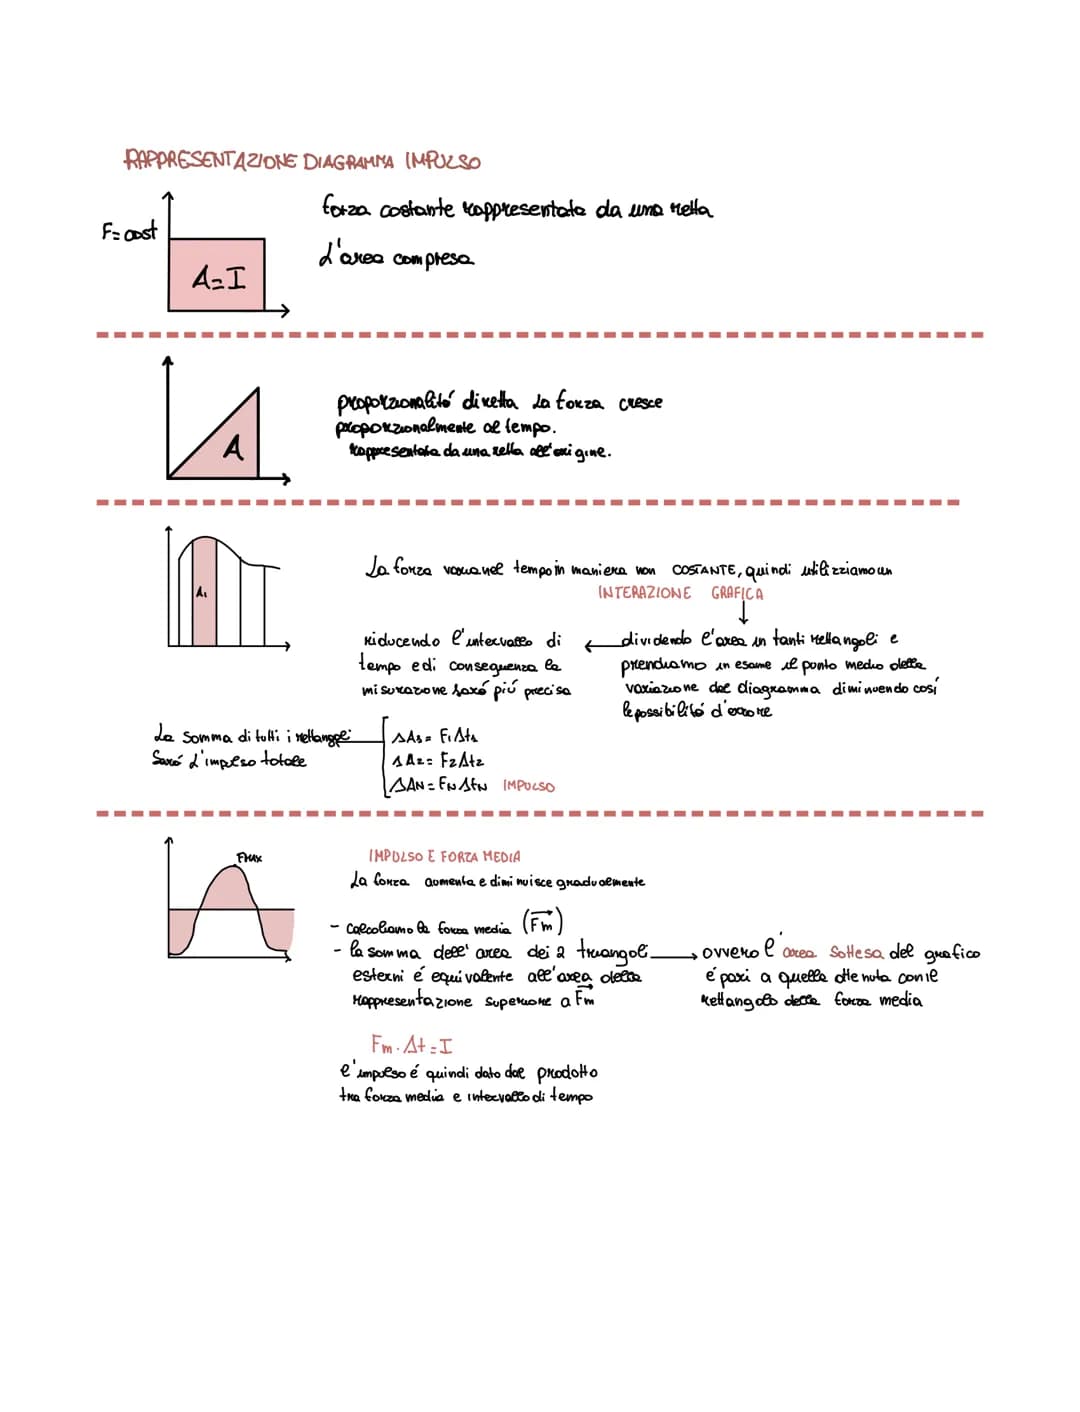 RAPPRESENTAZIONE DIAGRAMMA IMPULSO
forza costante rappresentata da una retta
F= cost
L'area compresa
A=I
proporzionalitá diretta la forza cresce
proporzionalmente al tempo.
rappresentata da una retta all'origine.
A
La forza varia nel tempo in maniera non COSTANTE, quindi utilizziamo un
INTERAZIONE GRAFICA
A₁
dividendo l'area in tanti rettangoli e
prendiamo in esame il punto medio della
variazione del diagramma diminuendo cosí
le possibilitá d'errore
riducendo l'intervallo di
tempo e di conseguenza la
misurazione sará piú precisa
La somma di tutti i rettangoli
Sará l'impulso totale
ΔA₁= F₁Δt₁
ΔA₂= F₂Δt₂
ΔAN= FNΔtN IMPULSO
FMAX
IMPULSO E FORZA MEDIA
La forza aumenta e diminuisce gradualmente
- calcoliamo la forza media (Fm)
- la somma dell' area dei 2 triangoli
esterni é equivalente all'area della
rappresentazione superiore a Fm
ovvero l'area sottesa del grafico
é pari a quella ottenuta con il
rettangolo della forza media
Fm · Δt = I
l'impulso é quindi dato dal prodotto
tra forza media e intervallo di tempo